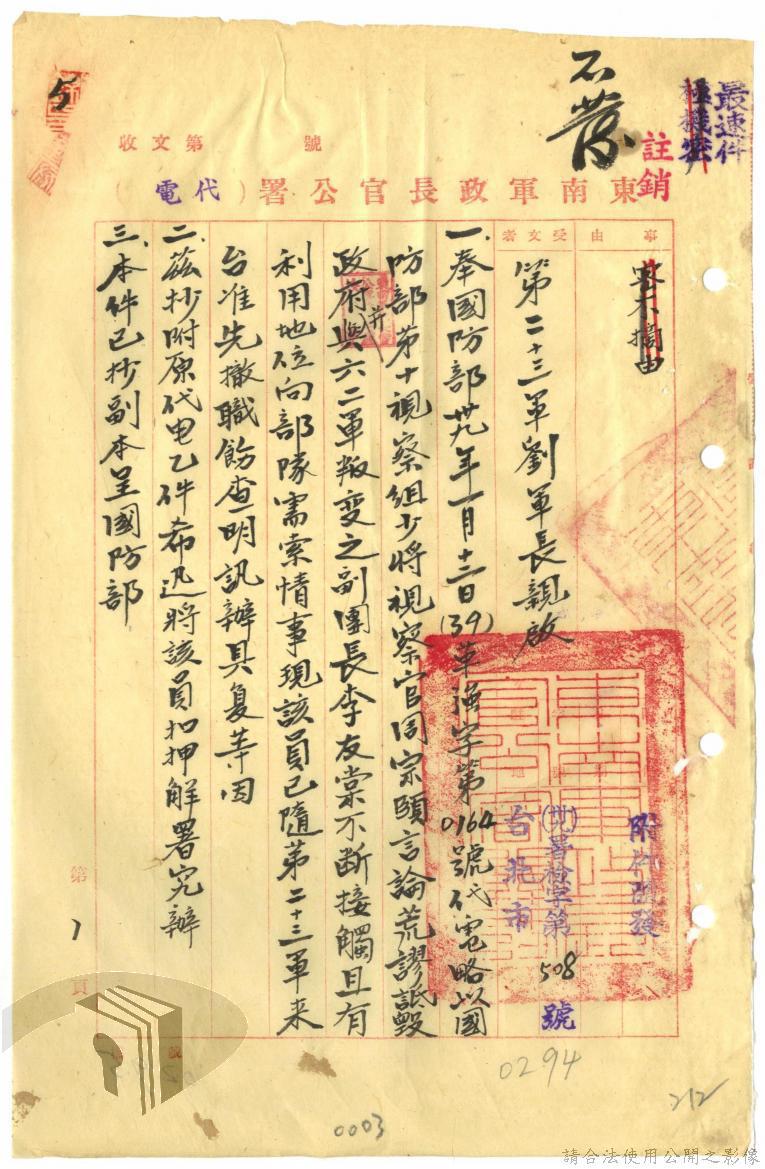 最速件
極機密
註銷
5
收文第　　號
東南軍政長官公署（代電）
事由
受文者
密不摘由
附件隨發
第二十三軍劉軍長親啟
(卅九)署檢字第508號
台北市
一、奉國防部卅九年一月十三日(39)革強字第0164號代電略以國
防部第十視察組少將視察官周宗頤言論荒謬詆毀
政府并與六二軍叛變之副團長李友棠不斷接觸且有
利用地位向部隊需索情事現該員已隨第二十三軍來
台准先撤職飭查明訊辦具复等因
二、茲抄附原代电乙件希迅將該員扣押解署究辦
三、本件已抄副本呈國防部
第1頁
0294
212
0003
請合法使用公開之影像